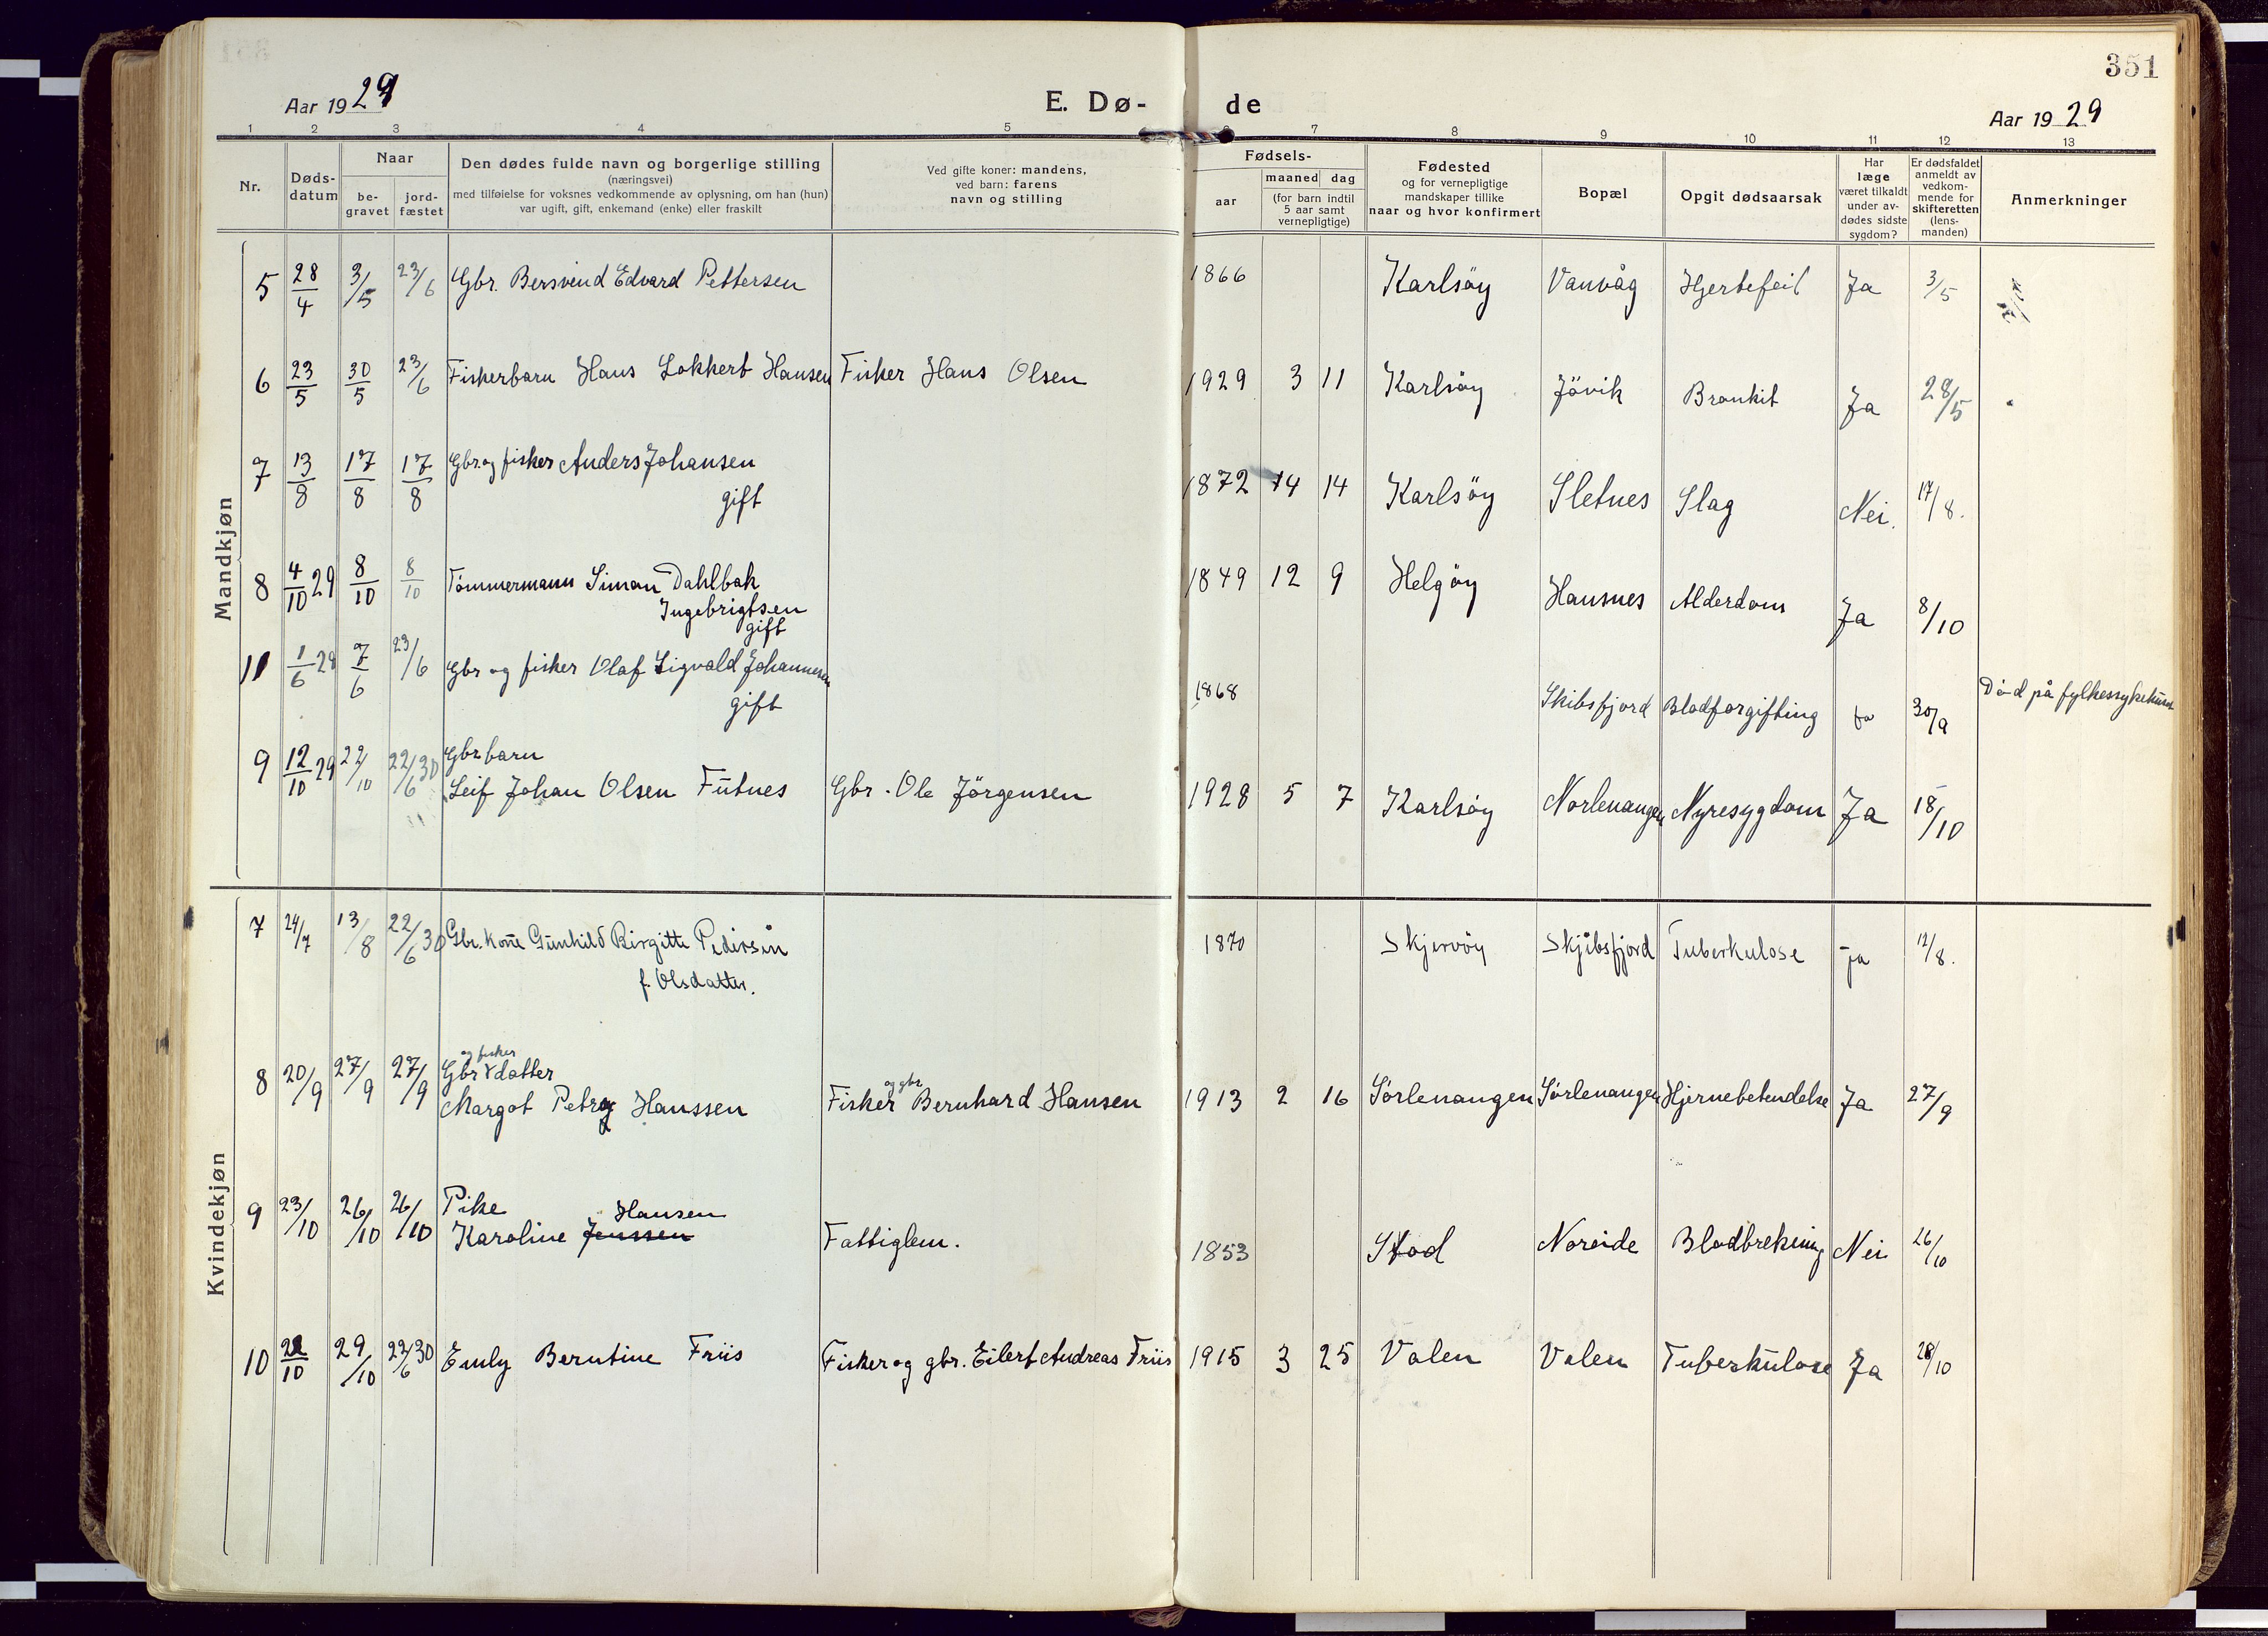 351
Aar 1929
E. Dø-
de
Aar 1929
1 2 3 4 5 7 8 9 10 11 12 13
Nr.
Døds-
datum
Naar
be-
gravet
jord-
fæstet
Den dødes fulde navn og borgerlige stilling
(næringsvei)
med tilføielse for voksnes vedkommende av oplysning, om han (hun)
var ugift, gift, enkemand (enke) eller fraskilt
Ved gifte koner: mandens,
ved barn: farens
navn og stilling
Fødsels-
aar
maaned dag
(for barn indtil
5 aar samt
vernepligtige)
Fødested
og for vernepligtige
mandskaper tillike
naar og hvor konfirmert
Bopæl
Opgit dødsaarsak
Har
læge
været tilkaldt
under av-
dødes sidste
sygdom?
Er dødsfaldet
anmeldt av
vedkom-
mende for
skifteretten
(lens-
manden)
Anmerkninger
Mandkjøn
5 28/4 3/5 23/6 Gbr. Bersvend Edvard Pettersen 1866 Karlsöy Vanvåg Hjertefeil Ja 3/5
6 23/5 30/5 23/6 Fiskerbarn Hans Lokkert Hansen Fisker Hans Olsen 1929 3 11 Karlsöy Jövik Bronkit Ja 28/5
7 13/8 17/8 17/8 Gbr. og fisker Anders Johansen 1872 14 14 Karlsöy Sletnes Slag Nei. 17/8.
gift
8 4/10 29 8/10 8/10 Tömmermann Simon Dahlbak 1849 12 9 Helgöy Hansnes Alderdom Ja 8/10
Ingebrigtsen
gift
11 1/6 29 7/6 23/6 Gbr og fisker Olaf Sigvald Johannesen 1868 Skibsfjord Blodforgifting Ja 30/9 Död på
gift
9 12/10 29 22/10 22/6 30 Gbr. barn
Leif Johan Olsen Futnes Gbr. Ole Jörgensen 1928 5 7 Karlsöy Norlenangen Nyresygdom Ja 18/10
Kvindekjøn
7 24/7 13/8 22/6 30 Gbr. kone Gunhild Birgitte Pedersen 1870 Skjervöy Skjibsfjord Tuberkulose Ja 12/8.
f. Olsdatter.
8 20/9 27/9 27/9 og fisker
Gbr datter
Margot Petry Hanssen Fisker og gbr. Bernhard Hansen 1913 2 16 Sörlenangen Sörlenangen Hjernebetendelse Ja 27/9
9 23/10 26/10 26/10 Pike
Hansen
Karoline Jenssen Fattiglem. 1853 Stod Noreide Blodbrekning Nei 26/10
10 22/10 29/10 22/6 30 Emly Berntine Friis Fisker og gbr. Eilert Andreas Friis 1915 3 25 Valen Valen Tuberkulose Ja 28/10